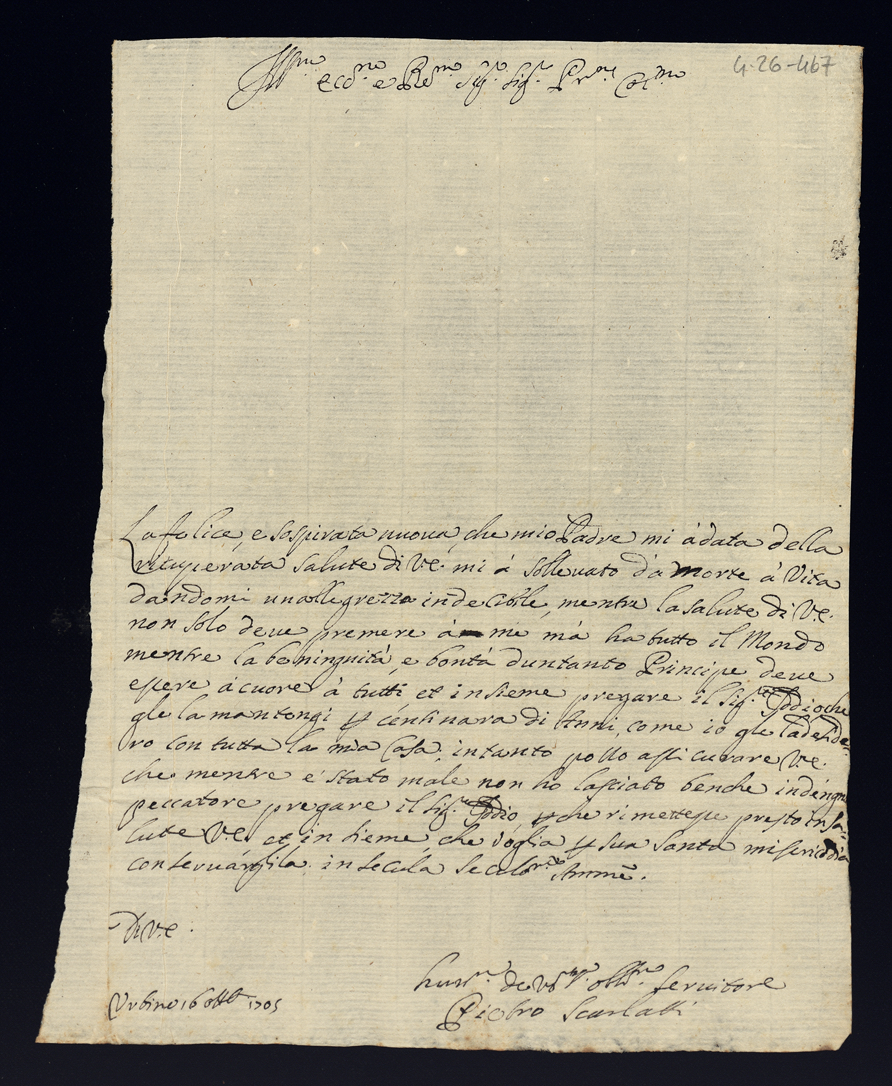 4-26-467
Ill.mo Ecc.mo e Re.mo Sig.r Sig.r Pr.one Col.mo
La felice, e sospirata nuova, che mio Padre mi á data della
ricuperata salute di V.E. mi á solleuato dá morte á Vita
dandomi unallegrezza indecibile, mentre la salute di V.E.
non solo deue premere á me má ha tutto il Mondo
mentre la boninguitá, e bontá duntanto Principe deue
essere ácuore á tutti et insieme pregare il Sig.re Iddio che
gle la mantengi p centinara di Anni, come io gle la deside=
ro con tutta la mia Casa, intanto posso assicurare V.E.
che mentre é stato male non ho lasciato benche indengno
peccatore pregare il Sig.re Iddio, che rimettesse presto in sa=
lute V.E. et insieme, che voglia p sua Santa misericordia
conseruárgila in secula seculor Ammē.
Di V.E.
Vrbino 16 ottb 1705
hum.mo deuo.mo obb.mo seruitore
Pietro Scarlatti